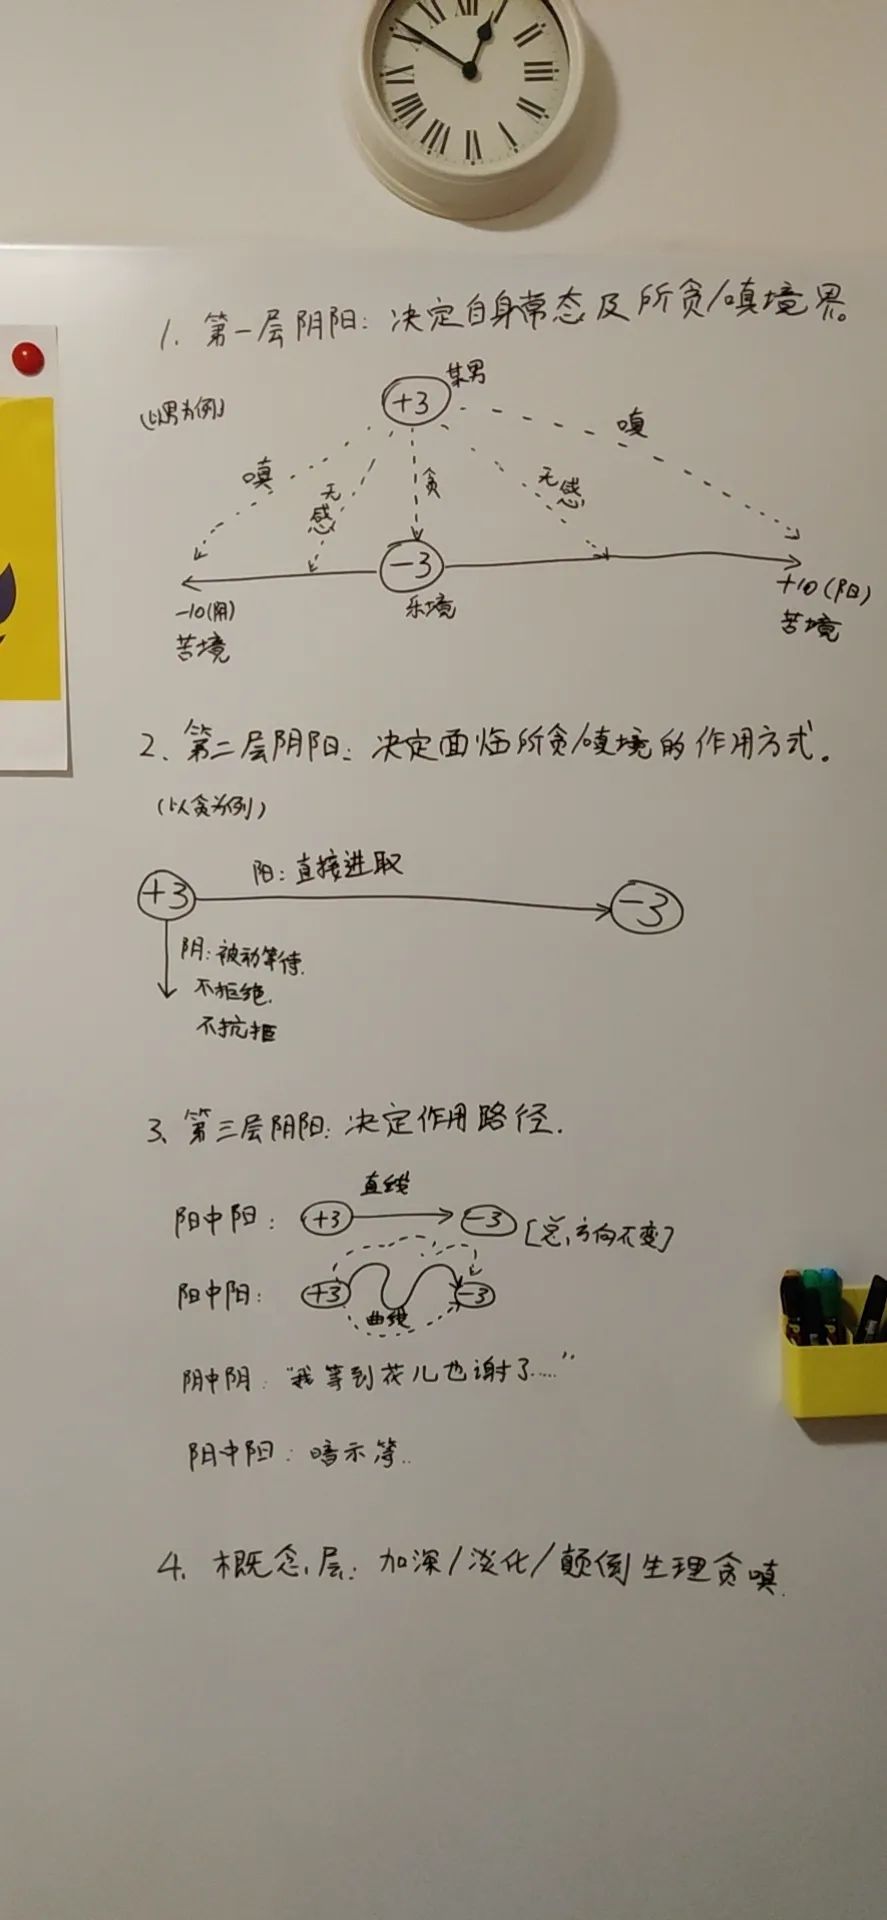 1. 第一层阴阳：决定自身常态及所贪/嗔境界。
(以男为例)
某男
+3
嗔
无感
贪
无感
嗔
-3
-10(阴)
苦境
乐境
+10(阳)
苦境
2、第二层阴阳：决定面临所贪/嗔境的作用方式.
(以贪为例)
+3
阳：直接进取
-3
阴：被动等待.
不拒绝.
不抗拒
3、第三层阴阳：决定作用路径.
直线
阳中阳：
+3
-3
[总方向不变]
阳中阴：
+3
曲线
-3
阴中阴："我等到花儿也谢了....."
阴中阳：暗示等..
4、概念层：加深/淡化/颠倒生理贪嗔.